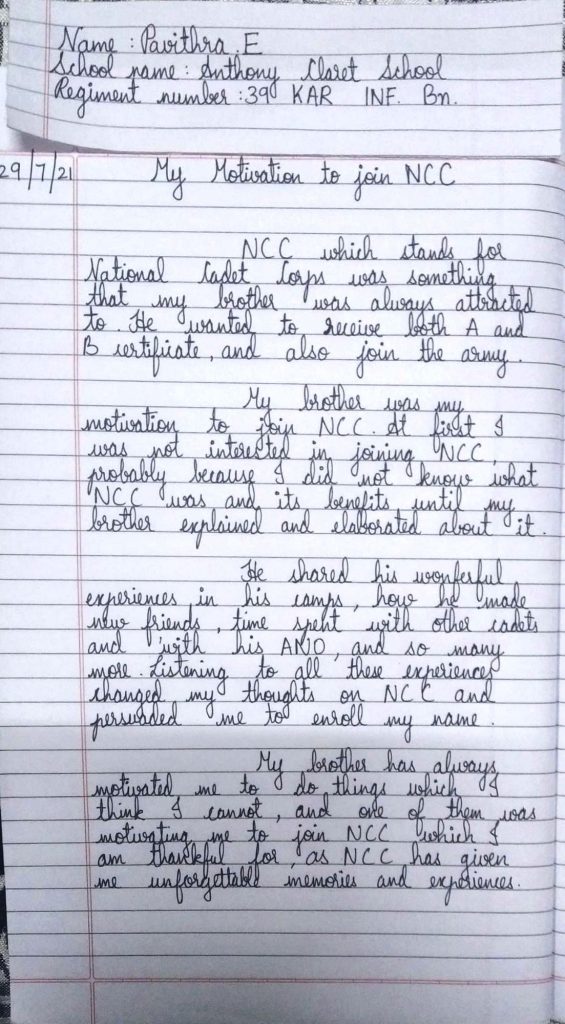 Name : Pavithra. E
School name : Anthony Claret School
Regiment number : 39 KAR INF. Bn.
29/7/21 My Motivation to join NCC
NCC which stands for
National Cadet Corps was something
that my brother was always attracted
to. He wanted to receive both A and
B certificate, and also join the army.
My brother was my
motivation to join NCC. At first I
was not interested in joining NCC,
probably because I did not know what
NCC was and its benefits until my
brother explained and elaborated about it.
He shared his wonferful
experiences in his camps, how he made
new friends, time spent with other cadets
and with his ANO, and so many
more. Listening to all these experiences
changed my thoughts on NCC and
persuaded me to enroll my name.
My brother has always
motivated me to do things which I
think I cannot, and one of them was
motivating me to join NCC which I
am thankful for, as NCC has given
me unforgettable memories and experiences.